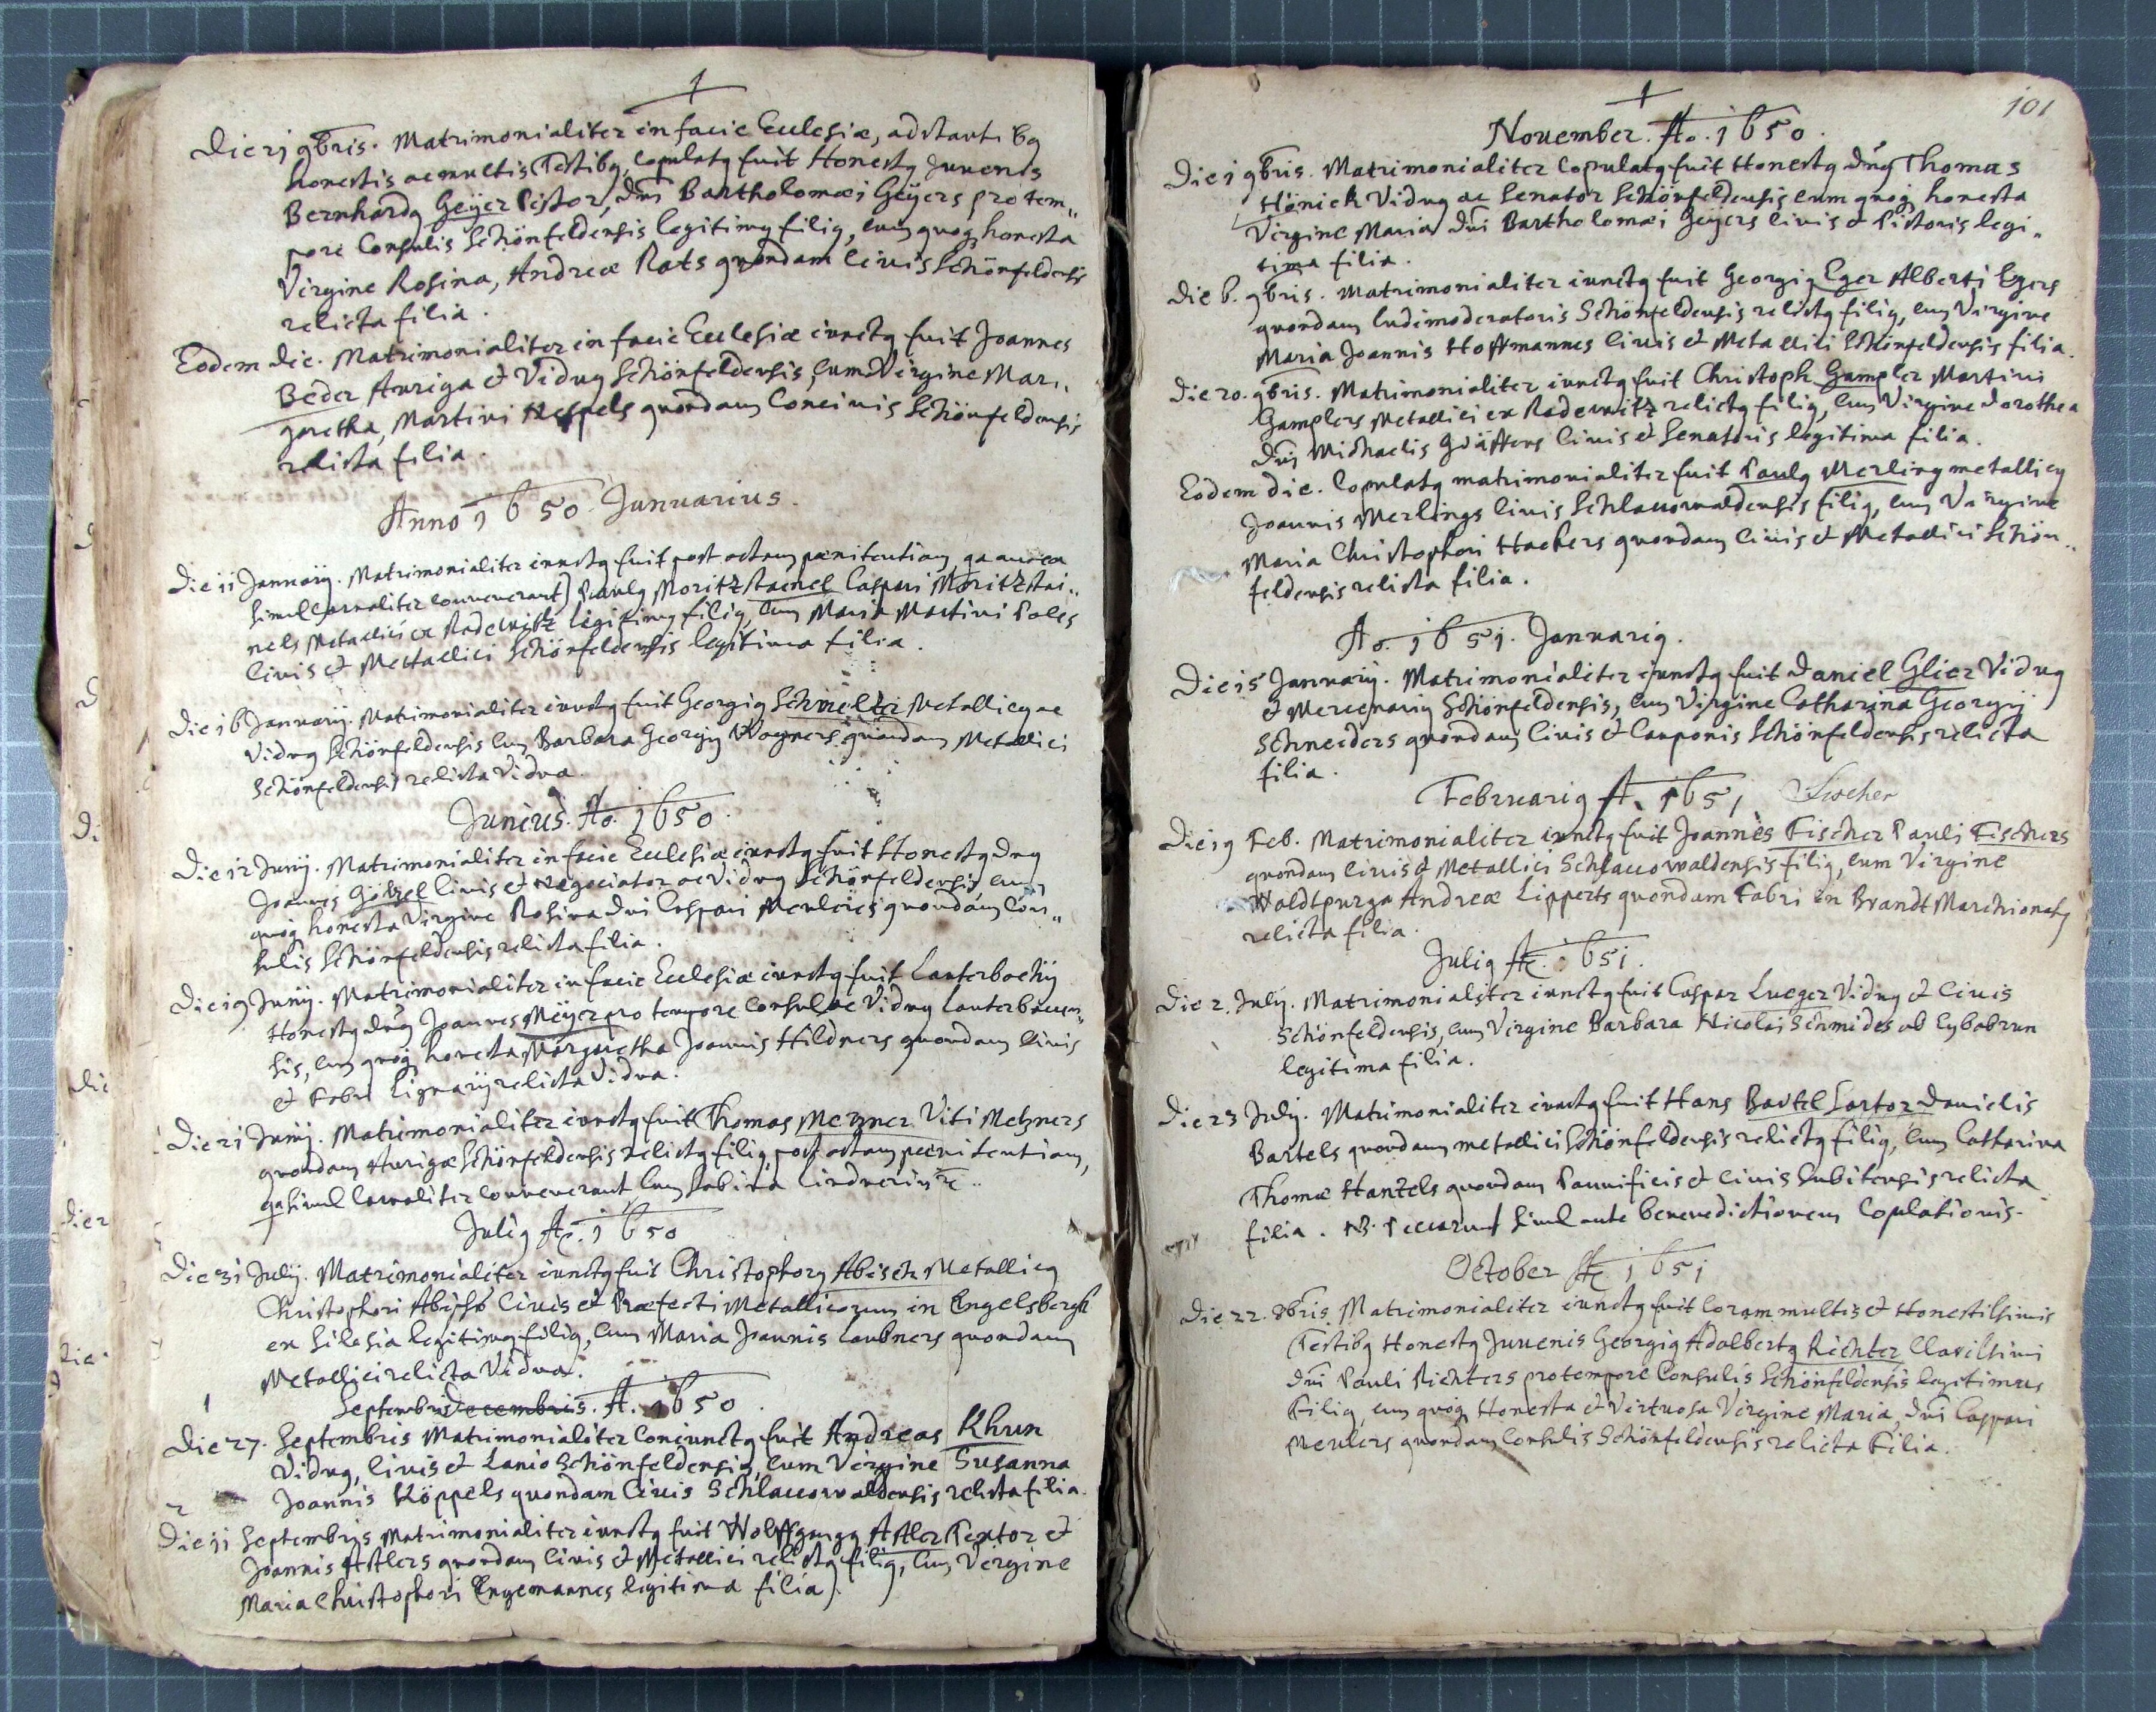 Die 21 9bris. Matrimonialiter in facie Ecclesiæ, adstantibq
honestis ac multis Testibq, copulatq fuit Honestq Juvenis
Bernhardq Geÿer Pistor, dni Bartholomæi Geÿers pro tem„
pore Consulis Schönfeldensis legitimq filiq, cum quoq honesta
Virgine Rosina, Andreæ Rats quondam Civis Schönfeldensis
relicta filia.
Eodem die. Matrimonialiter in facie Ecclesiæ iunctq fuit Joannes
Beder Auriga et Viduq Schönfeldensis, cum Virgine Mar„
garetha, Martini Hespels quondam Concivis Schönfeldensis
relicta filia.
Anno 1650 Januarius.
Die 11 Januarÿ. Matrimonialiter iunctq fuit post actam pænitentiam, qa antea
simul carnaliter convenerant) Paulq Moritzstainel Caspari Moritzstai„
nels Metallici ex Radewitz legitimq filiq, cum Maria Martini Poles
Civis et Metallici Schönfeldensis legitima filia.
Die 16 Januarÿ. Matrimonialiter iunctq fuit Georgiq Schmelter Metallicq ac
Viduq Schönfeldensis cum Barbara Georgÿ Wagners quondam Metallici
Schönfeldensis relicta Vidua.
Junius. Ao. 1650.
Die 12 Junÿ. Matrimonialiter in facie Ecclesiæ iunctq fuit Honestq Dnq
Joannes Götzel Civis et Negociator ac Viduq Schönfeldensis cum
quoq honesta Virgine Rosina dni Caspari Meulers quondam Con„
sulis Schönfeldensis relicta filia.
Die 19 Junÿ. Matrimonialiter in facie Ecclesiæ iunctq fuit Lauterbachÿ
Honestq dnq Joannes Meÿer pro tempore Consul ac Viduq Lauterbacen„
sis, cum quoq honesta Margaretha Joannis Hildners quondam Civis
et Fabri Lignarÿ relicta Vidua.
Die 21 Junÿ. Matrimonialiter iunctq fuit Thomas Metzner Viti Metzners
quondam Aurigæ Schönfeldensis relictq filiq, post actam pœnitentiam,
qa simul carnaliter convenerant cum Sabina Lindnerin ꝛc.
Juliq Ao. 1650
Die 31 Julÿ. Matrimonialiter iunctq fuit Christophorq Abisch Metallicq
Christophori Abischs Civis et Præfecti Metallicorum in Engelsbergk
ex Silesia legitimq filiq, cum Maria Joannis Laubners quondam
Metallici relicta Vidua.
Septembris Decembris. A. 1650.
1
Die 27. Septembris Matrimonialiter Coniunctq fuit Andreas Khun
Viduq, Civis et Lanio Schönfeldensis, cum Virgine Susanna
Joannis Köppels quondam Civis Schlaccowaldensis relicta filia.
2
Die 11 Septembris Matrimonialiter iunctq fuit Wolffgangq Astler Textor et
Joannis Astlers quondam Civis et Metallici relictq filiq, cum Virgine
Maria Christophori Engemannes legitima filia.
101
November. Ao. 1650.
Die 1 9bris. Matrimonialiter Copulatq fuit Honestq dnq Thomas
Hönick Viduq ac Senator Schönfeldensis cum quoq honesta
Virgine Maria dni Bartholomæi Geÿers Civis et Pistoris legi„
tima filia.
Die 6. 9bris. Matrimonialiter iunctq fuit Georgiq Eger Alberti Egers
quondam ludimoderatoris Schönfeldensis relictq filiq, cum Virgine
Maria Joannis Hoffmannes Civis et Metallici Schönfeldensis filia.
Die 20. 9bris. Matrimonialiter iunctq fuit Christoph Gampler Martini
Gamplers Metallici ex Radewitz relictq filiq, cum Virgine Dorothea
dni Michaelis Gräffers Civis et Senatoris legitima filia.
Eodem die. Copulatq matrimonialiter fuit Paulq Merling metallicq
Joannis Merlings Civis Schlaccowaldensis filiq, cum Virgine
Maria Christophori Hackers quondam Civis et Metallici Schön„
feldensis relicta filia.
Ao. 1651. Januariq.
Die 15 Januarÿ. Matrimonialiter iunctq fuit Daniel Glier Viduq
et Mercenariq Schönfeldensis, cum Virgine Catharina Georgÿ
Schneiders quondam Civis et Cauponis Schönfeldensis relicta
filia.
Februariq A. 1651 Fischer
Die 19 Feb. Matrimonialiter iunctq fuit Joannes Fischer Pauli Fischers
quondam Civis et Metallici Schlaccowaldensis filiq, cum Virgine
Waldtpurga Andreæ Lipperts quondam Fabri in Brandt Marchionatq
relicta filia.
Juliq Ao. 1651.
Die 2. Julÿ. Matrimonialiter iunctq fuit Caspar Lueger Viduq et Civis
Schönfeldensis, cum Virgine Barbara Nicolai Schmides ab Eybabrun
legitima filia.
Die 23 Julÿ. Matrimonialiter iunctq fuit Hans Bartel Sartor Danielis
Bartels quondam metallici Schönfeldensis relictq filiq, cum Catharina
Thomæ Hantzels quondam Pannificis et Civis Cubitensis relicta
filia. NB. Peccarunt simul ante benedictionem Copulationis.
October Ao 1651
Die 22. 8bris. Matrimonialiter iunctq fuit coram multis et Honestissimis
Testibq Honestq Juvenis Georgiq Adalbertq Richter Clarissimi
dni Pauli Richters pro tempore Consulis Schönfeldensis legitimus
Filiq, cum quoq Honesta et Virtuosa Virgine Maria, dni Caspari
Meulers quondam Consulis Schönfeldensis relicta Filia.